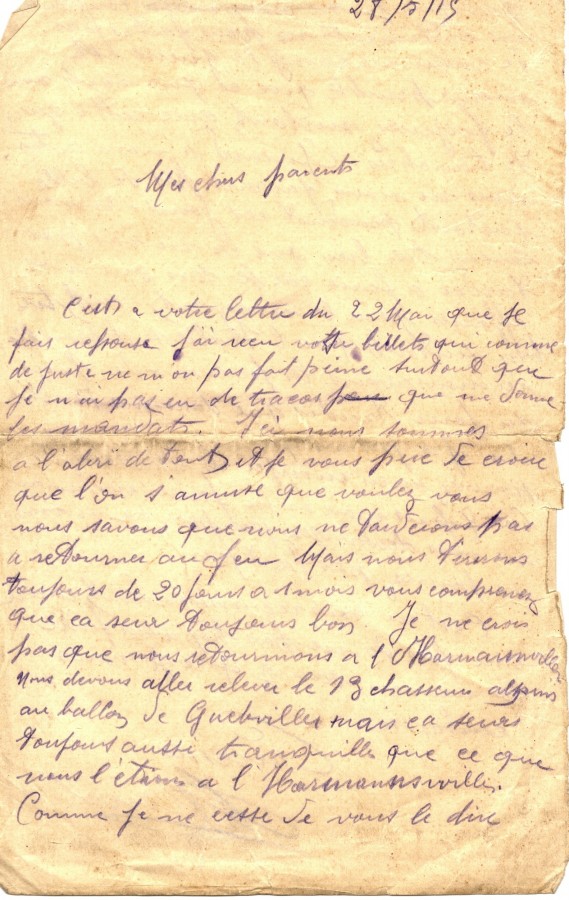 28/5/15
Mes chers parents
C'est a votre lettre du 22 Mai que je
fais reponse j'ai recu votre billets qui comme
de juste ne m'on pas fait peine surtout que
je n'ai pas eu de tracas que me donne
les mandats. Ici nous sommes
a l'abri de tout et je vous prie de croire
que l'on s'amuse que voulez vous
nous savons que nous ne tarderons pas
a retourner au feu Mais nous
toujours de 20 jours a 1 mois vous comprenez
que ca sera toujours bon. Je ne crois
pas que nous retournions a l'Harmansviller
nous devons aller relever le 13 chasseurs alpins
au ballon de Guebviller mais ca sera
toujours aussi tranquille que ce que
nous l'étions a l'Harmannsviller.
Comme je ne cesse de vous le dire